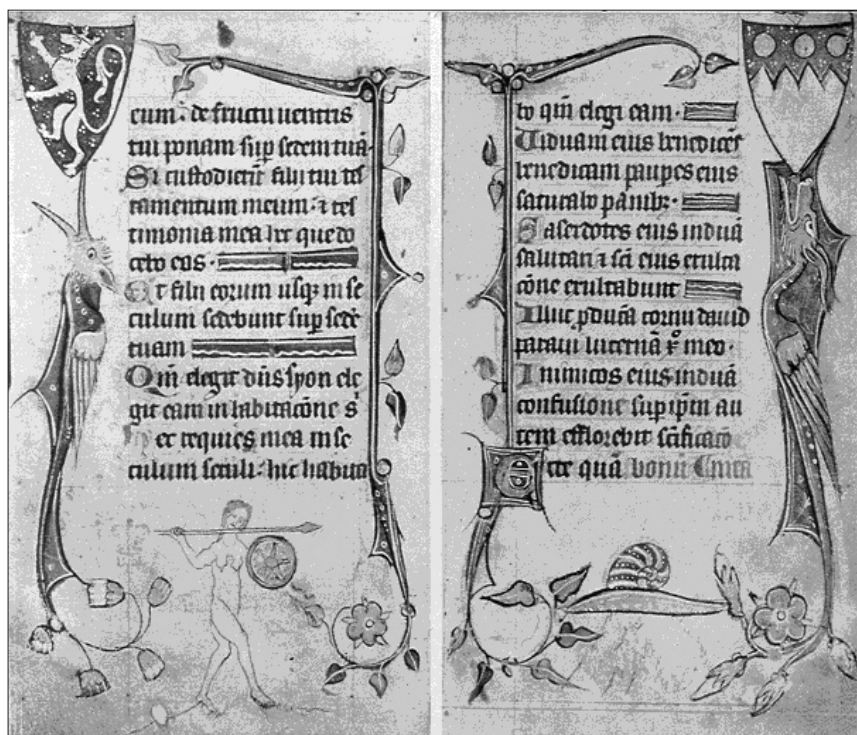 eum · de fructu uentris
tui ponam sup sedem tuā·
Si custodierīt filii tui tes
tamentum meum · ⁊ tes
timonia mea hec que do
cebo eos ·
Et filii eorum usqꝫ in se
culum sedebunt sup sedē
tuam
Qm̄ elegit dn̄s syon ele
git eam in habitacōne s
ec requies mea in se
culum seculi · hic habita
bo qm̄ elegi eam ·
Uiduam eius benedicēs
benedicam paupes eius
saturabo panibꝫ ·
Sacerdotes eius induā
salutari ⁊ sc̄i eius exulta
cōne exultabunt
Illuc ꝓducā cornu dauid
paraui lucernā xp̄o meo ·
Inimicos eius induā
confusione sup ip̄m au
tem efflorebit sc̄ificacō
Ecce quā bonū